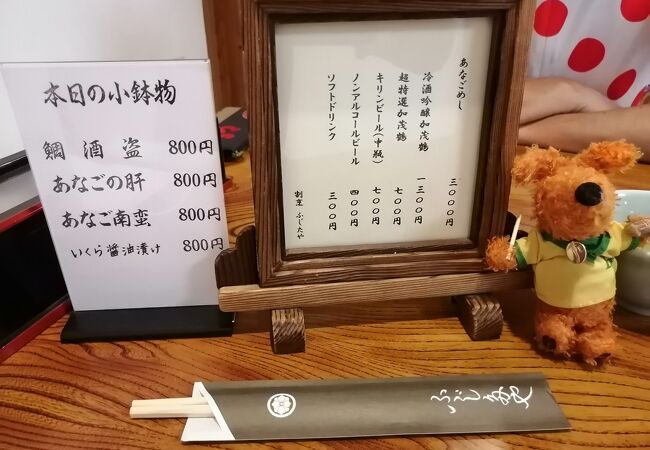 本日の小鉢物
鯛酒盗 800円
あなごの肝 800円
あなご南蛮 800円
いくら醤油漬け 800円
あなごめし 三〇〇〇円
冷酒吟醸加茂鶴 一三〇〇円
超特選加茂鶴 七〇〇円
キリンビール(中瓶) 七〇〇円
ノンアルコールビール 四〇〇円
ソフトドリンク 三〇〇円
割烹 ふじたや
ふじたや